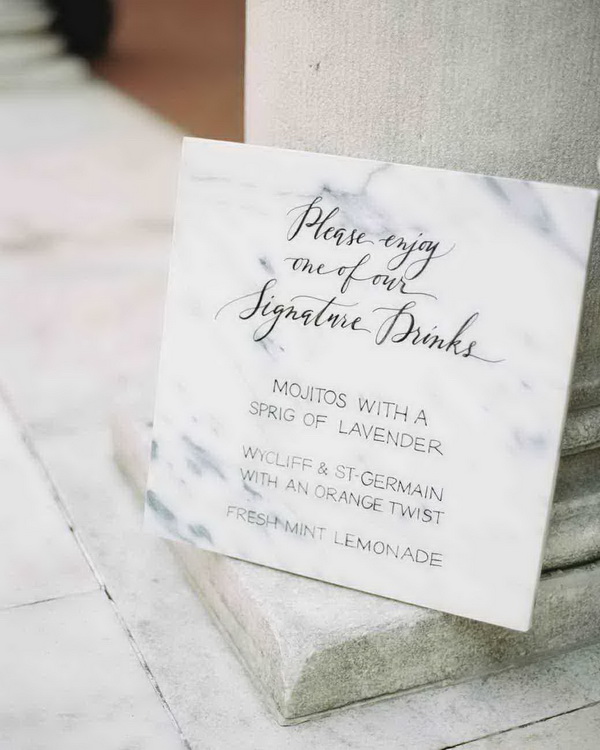 Please enjoy
one of our
Signature Drinks
MOJITOS WITH A
SPRIG OF LAVENDER
WYCLIFF & ST-GERMAIN
WITH AN ORANGE TWIST
FRESH MINT LEMONADE